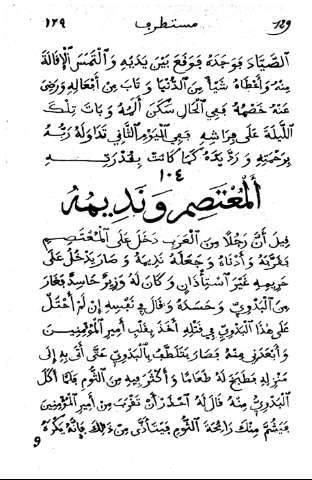 129 مستطرف ١٢٩
الصَّيَّادَ فَوَجَدَهُ فَوَقَعَ بَيْنَ يَدَيْهِ وَالْتَمَسَ الْإِقَالَةَ
مِنْهُ وَأَعْطَاهُ شَيْأً مِنَ الدُّنْيَا وَتَابَ مِنْ أَفْعَالِهِ وَرَضِيَ
عَنْهُ خَصْمُهُ فَفِي الْحَالِ سَكَنَ أَلَمُهُ وَبَاتَ تِلْكَ
اللَّيْلَةَ عَلَى فِرَاشِهِ فَفِي الْيَوْمِ الثَّانِي تَدَاوَلَهُ رَبُّهُ
بِرَحْمَتِهِ وَرَدَّ يَدَهُ كَمَا كَانَتْ بِقُدْرَتِهِ
١٠٤
أَلْمُعْتَصِمُ وَنَدِيمُهُ
قِيلَ أَنَّ رَجُلًا مِنَ الْعَرَبِ دَخَلَ عَلَى الْمُعْتَصِمِ
فَقَرَّبَهُ وَأَدْنَاهُ وَجَعَلَهُ نَدِيمَهُ وَصَارَ يَدْخُلُ عَلَى
حَرِيمِهِ غَيْرَ اسْتِأْذَانٍ وَكَانَ لَهُ وَزِيرٌ حَاسِدٌ فَغَارَ
مِنَ الْبَدَوِيِّ وَحَسَدَهُ وَقَالَ فِي نَفْسِهِ إِنْ لَمْ أَحْتَلْ
عَلَى هَذَا الْبَدَوِيِّ فِي قَتْلِهِ أَخَذَ بِقَلْبِ أَمِيرِ الْمُؤْمِنِينَ
وَأَبْعَدَنِي مِنْهُ فَصَارَ يَتَلَطَّفُ بِالْبَدَوِيِّ حَتَّى أَتَى بِهِ إِلَى
مَنْزِلِهِ فَطَبَخَ لَهُ طَعَامًا وَأَكْثَرَ فِيهِ مِنَ الثُّومِ فَلَمَّا أَكَلَ
الْبَدَوِيُّ مِنْهُ قَالَ لَهُ احْذَرْ أَنْ تَقْرُبَ مِنْ أَمِيرِ الْمُؤْمِنِينَ
فَيَشُمَّ مِنْكَ رَائِحَةَ الثُّومِ فَيَتَأَذَّى مِنْ ذَلِكَ فَإِنَّهُ يَكْرَهُهُ
9